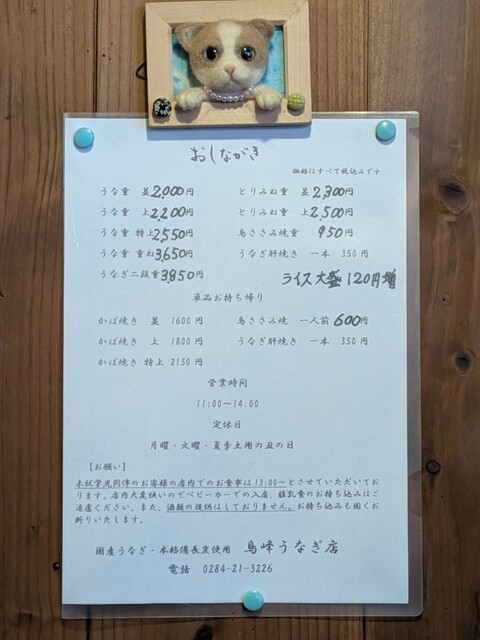 おしながき
価格はすべて税込みです
うな重 並2,000円 とりみね重 並2,300円
うな重 上2,200円 とりみね重 上2,500円
うな重 特上2,550円 鳥ささみ重 950円
うな重 重ね3,650円 うなぎ肝焼き 一本 350円
うなぎ二段重3,850円 ライス大盛120円増
単品お持ち帰り
かば焼き 並 1600円 鳥ささみ焼 一人前 600円
かば焼き 上 1800円 うなぎ肝焼き 一本 350円
かば焼き 特上 2150円
営業時間
11:00~14:00
定休日
月曜・火曜・夏季土用の丑の日
【お願い】
未就学児同伴のお客様の店内でのお食事は13:00~とさせていただいてお
ります。店内大変狭いのでベビーカーでの入店、離乳食のお持ち込みはご
遠慮ください。また、酒類の提供はしておりません。お持ち込みも固くお
断りいたします。
国産うなぎ・本格備長炭使用 鳥峰うなぎ店
電話 0284-21-3226